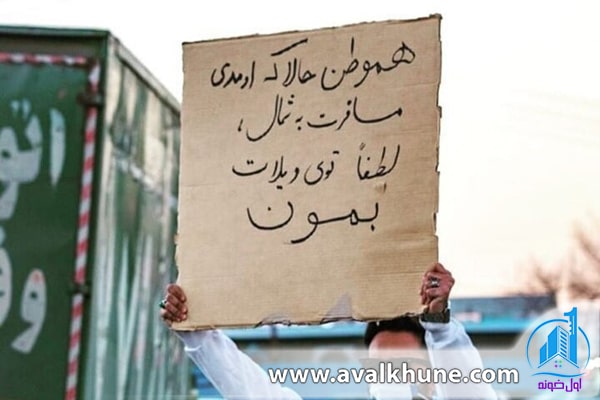 هموطن حالا که اومدی
مسافرت به شمال،
لطفاً توی ویلات
بمون
www.avalkhune.com
اول خونه